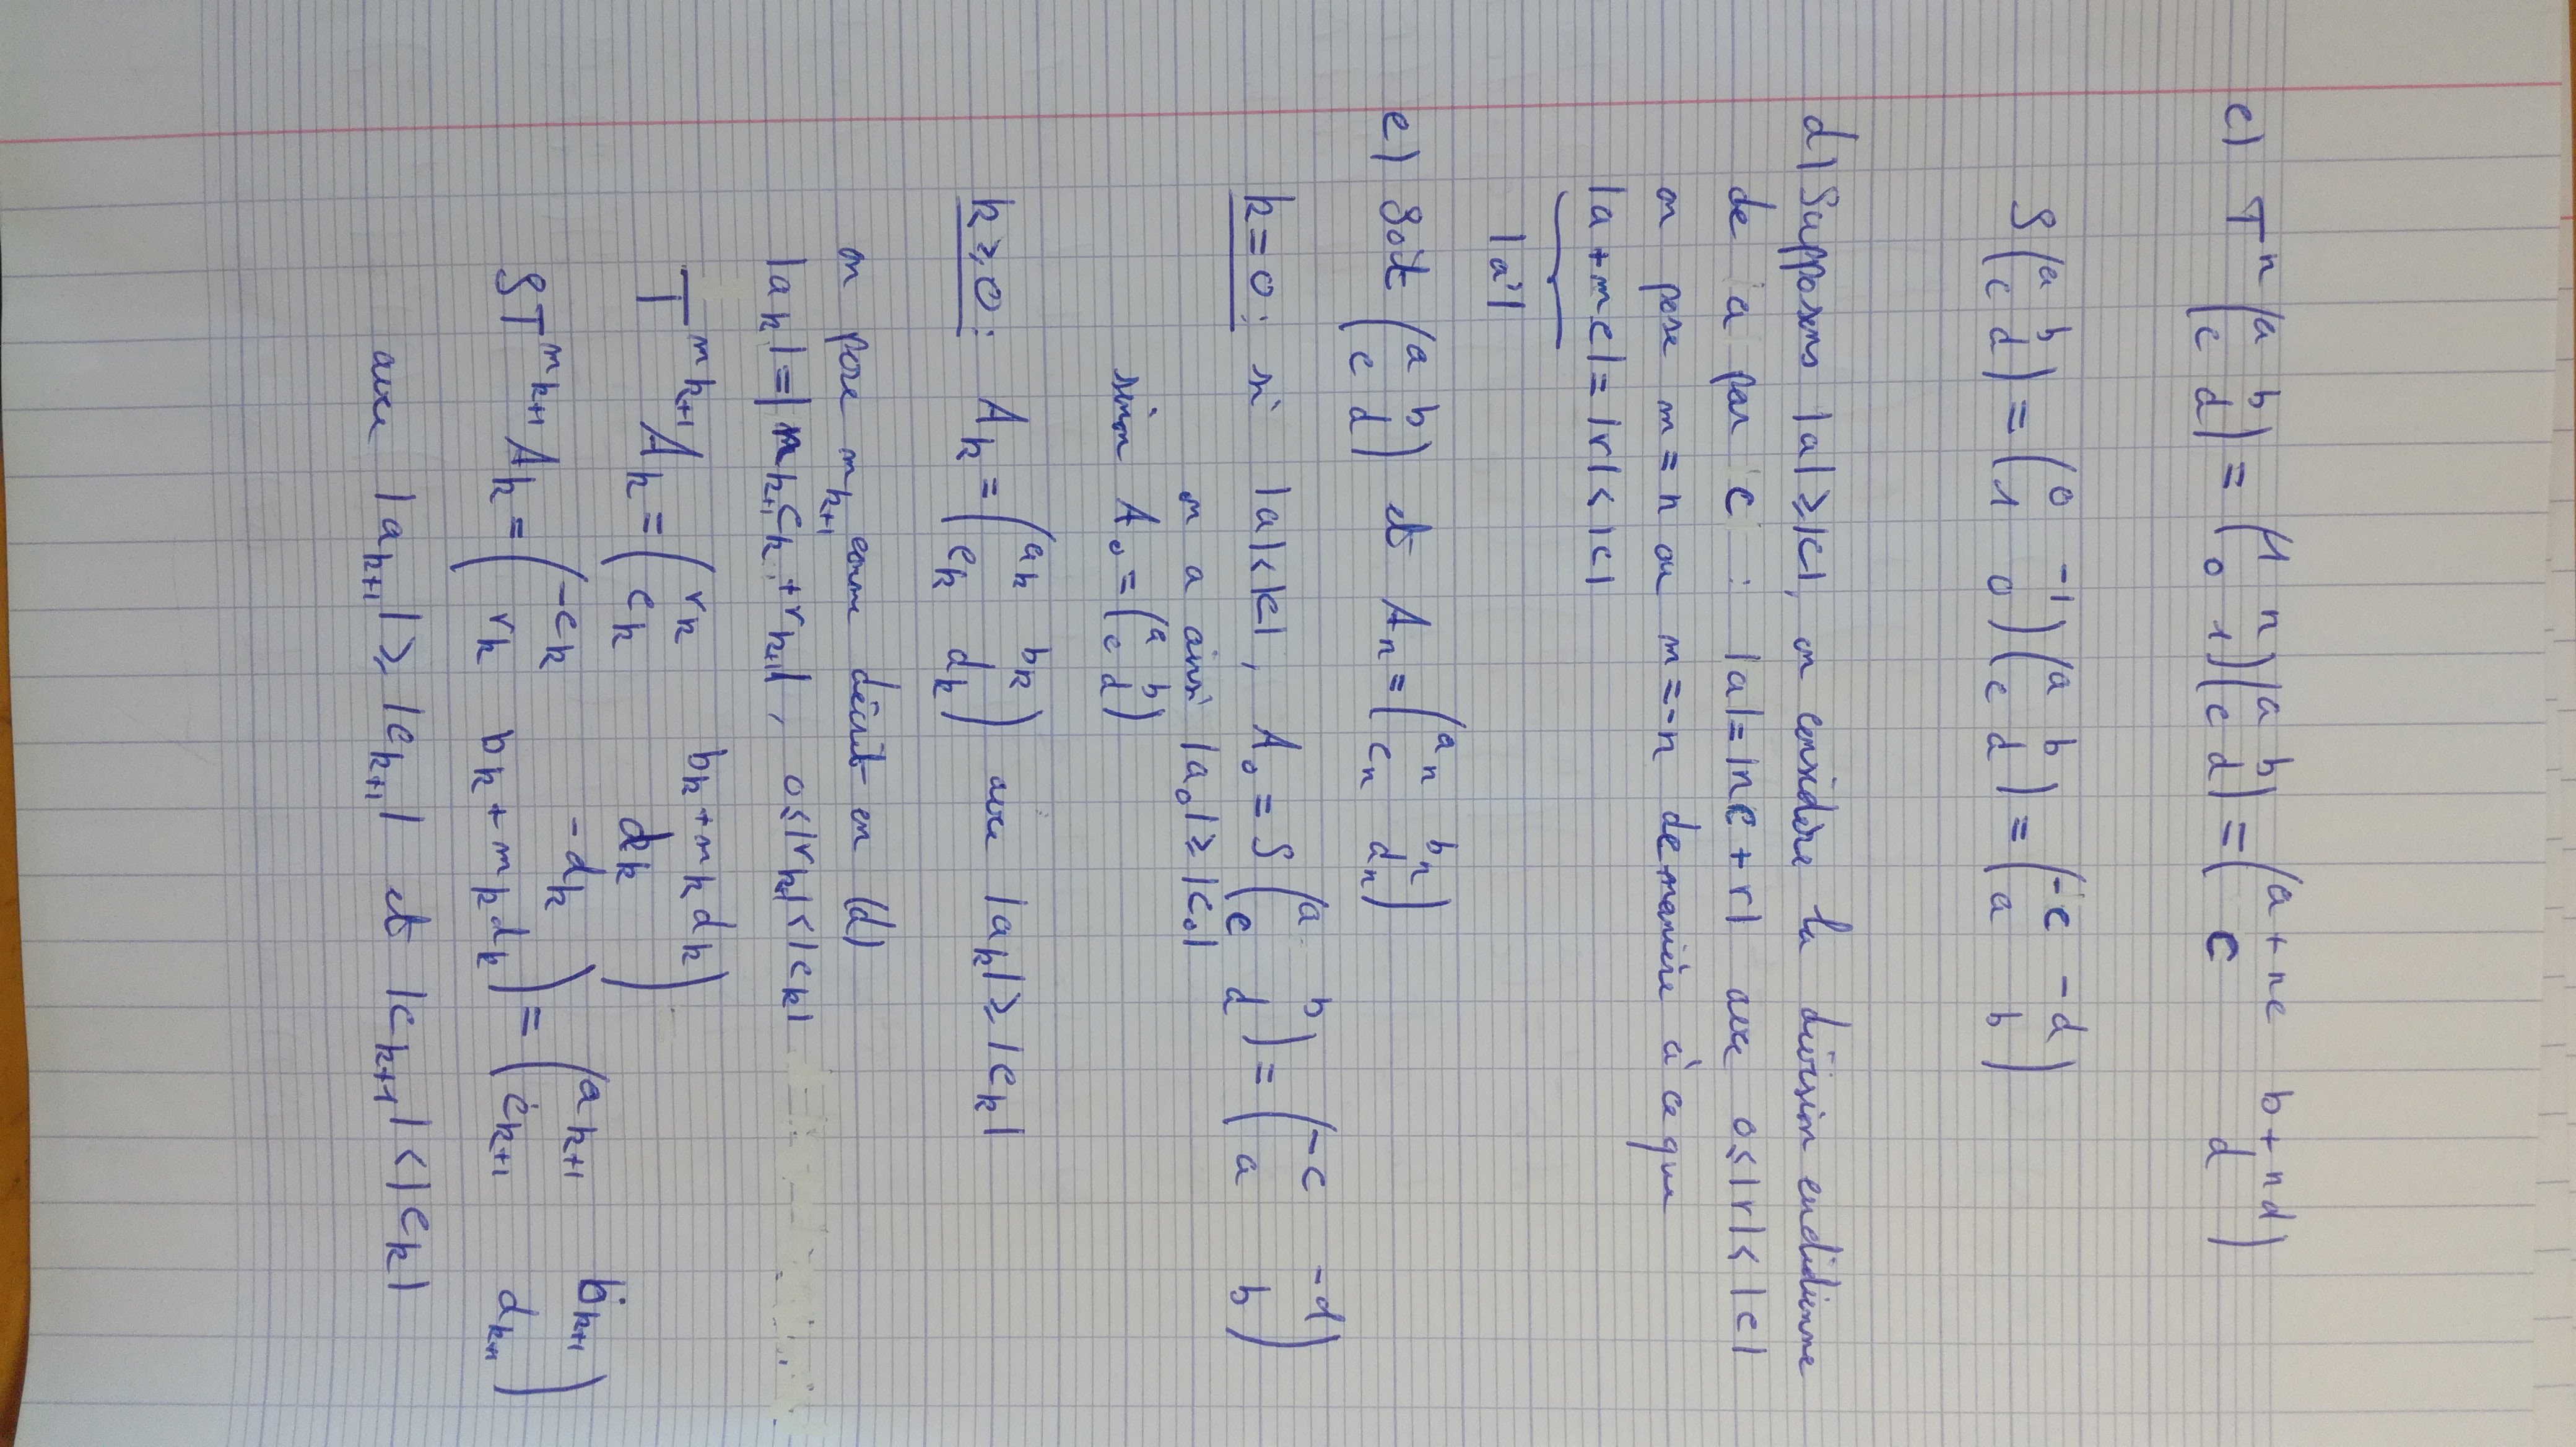 c) Tⁿ (a b ; c d) = (1 n ; 0 1)(a b ; c d) = (a+nc b+nd ; c d)
S (a b ; c d) = (0 -1 ; 1 0)(a b ; c d) = (-c -d ; a b)
d) Supposons |a| ≥ |c|, on considère la division euclidienne
de a par c : |a| = |nc + r| avec 0 ≤ |r| < |c|
on pose m = n ou m = -n de manière à ce que
|a + mc| = |r| < |c|
|a'|
e) Soit (a b ; c d) et Aₙ = (aₙ bₙ ; cₙ dₙ)
k = 0 : si |a| < |c|, A₀ = S (a b ; c d) = (-c -d ; a b)
on a ainsi |a₀| ≥ |c₀|
sinon A₀ = (a b ; c d)
k ≥ 0 : Aₖ = (aₖ bₖ ; cₖ dₖ) avec |aₖ| ≥ |cₖ|
on pose mₖ₊₁ comme décrit en (d)
|aₖ| = |mₖ₊₁cₖ + rₖ₊₁|, 0 ≤ |rₖ₊₁| < |cₖ|
T^{mₖ₊₁} Aₖ = (rₖ bₖ + mₖdₖ ; cₖ dₖ)
ST^{mₖ₊₁} Aₖ = (-cₖ -dₖ ; rₖ bₖ + mₖdₖ) = (aₖ₊₁ bₖ₊₁ ; cₖ₊₁ dₖ₊₁)
avec |aₖ₊₁| ≥ |cₖ₊₁| et |cₖ₊₁| < |cₖ|